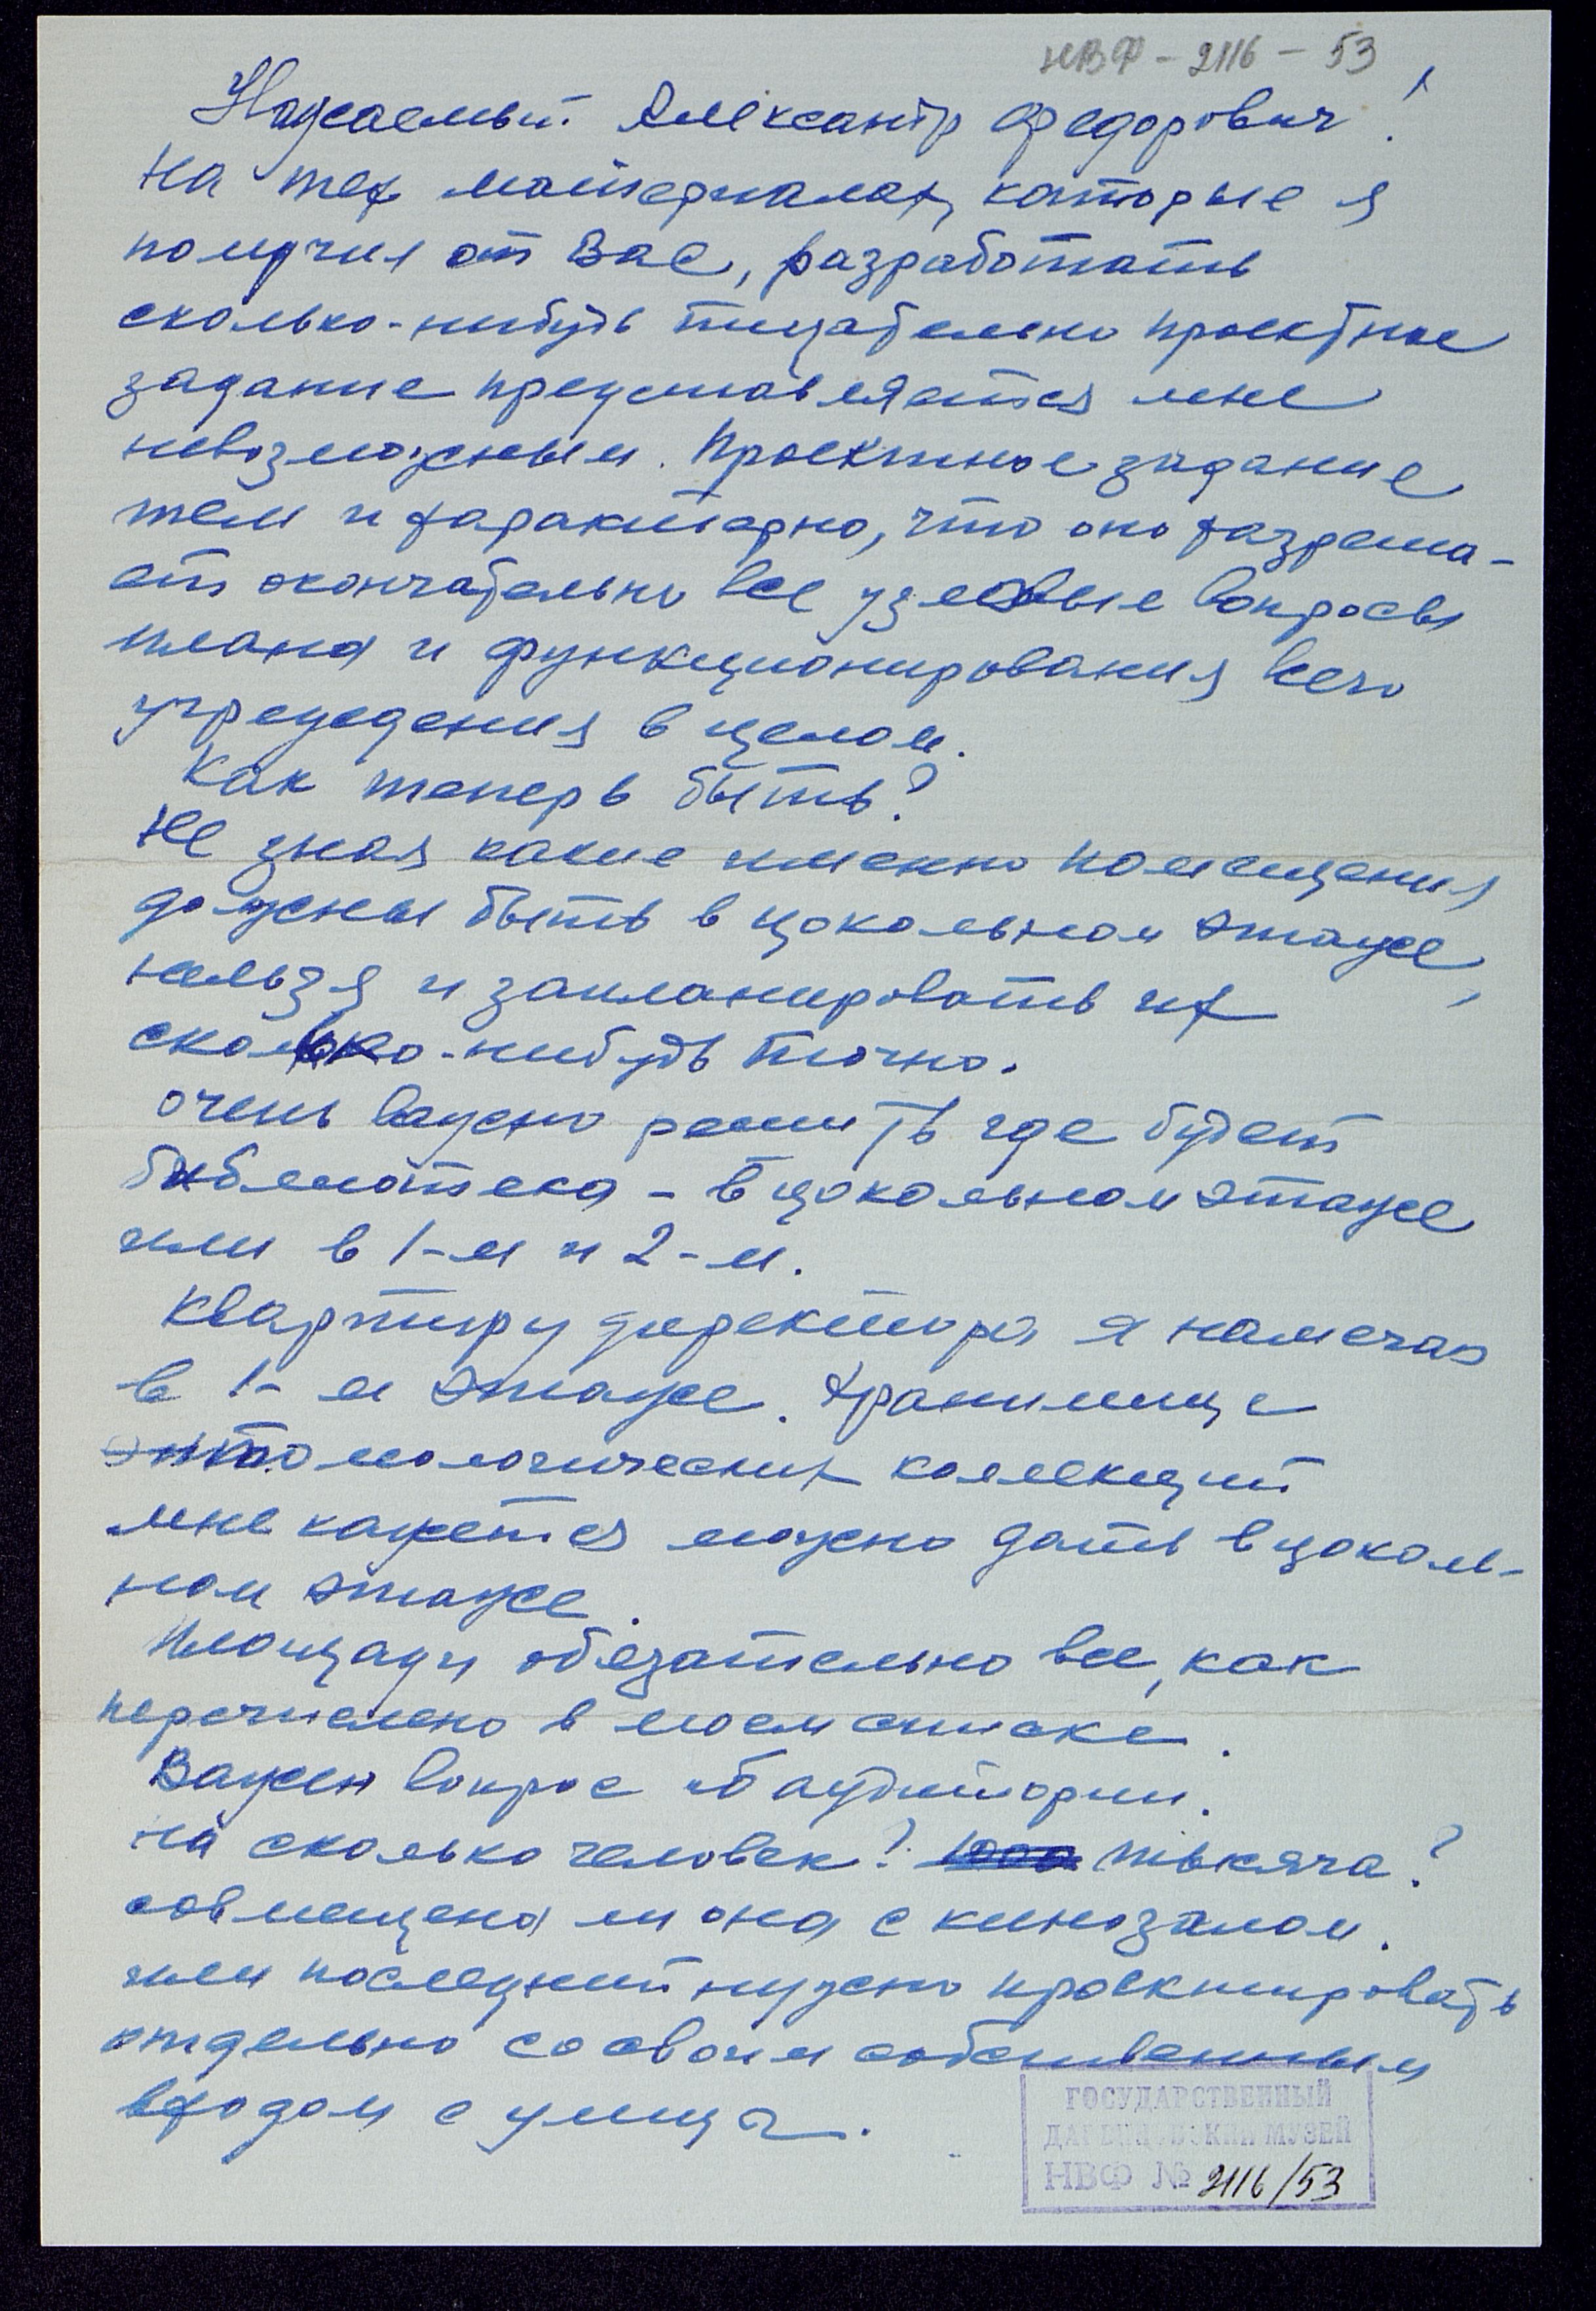 НВФ - 2116 - 53
Уважаемый Александр Федорович!
На тех материалах, которые я
получил от Вас, разработать
сколько-нибудь тщательно проектное
задание представляется мне
невозможным. Проектное задание
тем и характерно, что оно разреша-
ет окончательно все узловые вопросы
плана и функционирования всего
учреждения в целом.
Как теперь быть?
Не зная какие именно помещения
должны быть в цокольном этаже,
нельзя и запланировать их
сколько-нибудь точно.
Очень важно решить где будет
библиотека - в цокольном этаже
или в 1-м и 2-м.
Квартиру директора я намечаю
в 1-м этаже. Хранилище
энтомологических коллекций
мне кажется можно дать в цоколь-
ном этаже.
Площади обязательно все, как
перечислено в моем списке.
Важен вопрос об аудитории.
На сколько человек? 1000 тысяча?
совмещена ли она с кинозалом.
или последний нужно проектировать
отдельно со своим собственным
входом с улицы.
ГОСУДАРСТВЕННЫЙ
ДАРВИНОВСКИЙ МУЗЕЙ
НВФ № 2116/53